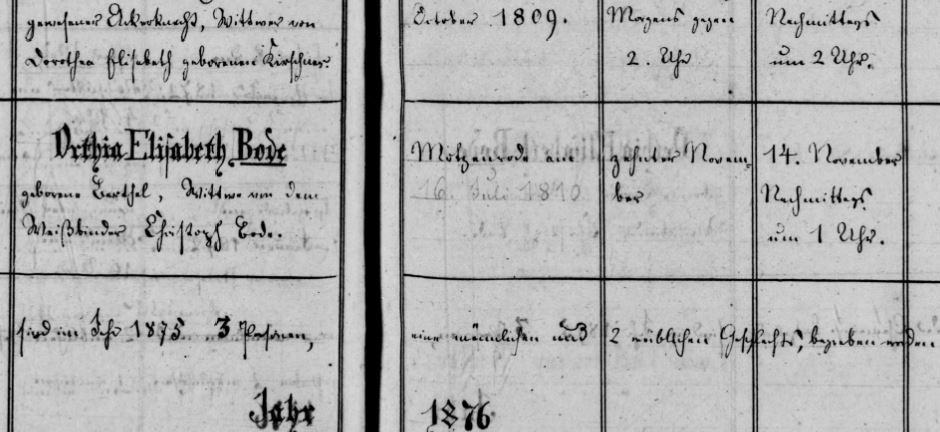 gewesener Ackerknecht, Wittwer von
Dorothea Elisabeth geborenen Kirschner.
October 1809.
Morgens gegen
2. Uhr
Nachmittags
um 2 Uhr.
Orthia Elisabeth Bode
geborene Berthel, Wittwe von dem
Weißbinder Christoph Bode.
Motzenrode am
16. Juli 1810
zehnter Novem-
ber
14. November
Nachmittags
um 1 Uhr.
sind im Jahr 1875 3 Personen, eine männlichen und 2 weiblichen Geschlechts, begraben worden
Jahr 1876